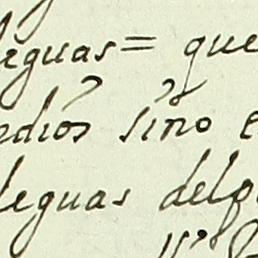 leguas = que
edios sino e
leguas delg